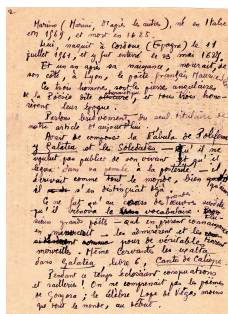 2.
Marino (Marini, d'après les autres), né en Italie
en 1569, et mort en 1625.
Lui, naquit à Cordoue (Espagne) le 11
juillet 1561, et y fut enterré le 23 mai 1627.
Et un an après sa naissance, mourait de
son côté, à Lyon, le poète français Maurice
Ces trois hommes sont la pierre angulaire
de la poésie dite obscure, et tous trois
leur époque.
Parlons brièvement du seul titulaire de
notre article d'aujourd'hui
Avant de composer la Fabula de Polifemo
y Galatea et les Soledades — qu'il ne
voulut pas publier de son vivant et qu'il
légua dans sa pensée à la postérité —, il
écrivait comme tout le monde, bien
il s'en distinguât déjà.
Ce ne fut qu'au cours de l'œuvre
qu'il rénova le vocabulaire.
grands poètes — qui en prirent connaissance
en manuscrit — les admirèrent et les
comme pour de véritables
merveilles. Même Cervantes les exalta
dans Galatea, libro 6, Canto de Caliope.
Pendant ce temps éclataient
et railleries! On ne comprenait pas les poèmes
de Gongora; le célèbre Lope de Vega, moins
que tout le monde, au début.